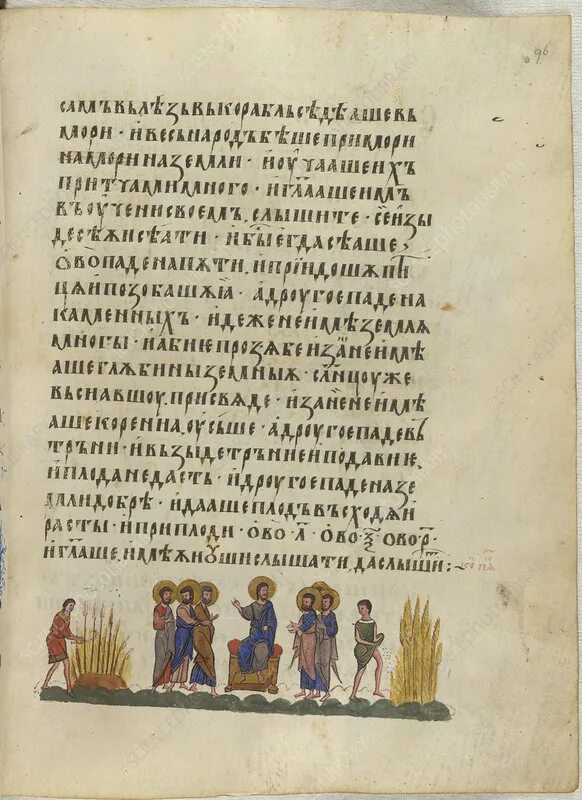 самъвьлѣзъвькорабльсѣдѣашевь
мори · ивесьнародъбѣшепримори
намориназемли · иоучаашеихъ
притчамимного · иг҃лаашеимъ
въоученисвоемъ. слышите · сеизы
десѣѫисѣати · ибыⷭ҇егдасѣаше,
ѻвопаденапѫти, ипрїидошѫпти
цѫипозобашѫа · адроугоепадена
каменныхъ · идеженеимѣземлѧ
многы · иабиѥпрозѧбеизанеимѣ
ашеглѫбиныземныѫ · сл҃нцоуже
въсиавшоу, присвѧде · изанеимѣ
ашекорениа, оусьше · адроугоепадевь
трьни · ивьзыдетрьниеиподавиѥ,
иплоданедасть · идроугоепаденазе
млидобрѣ · идаашеплодъвъсходѧи
расты · иприплоди · ово · л҃ · ово · ѯ҃ · ово · р҃ ·
иг҃лаше, имѣѫиоушислышатидаслыши :~
96